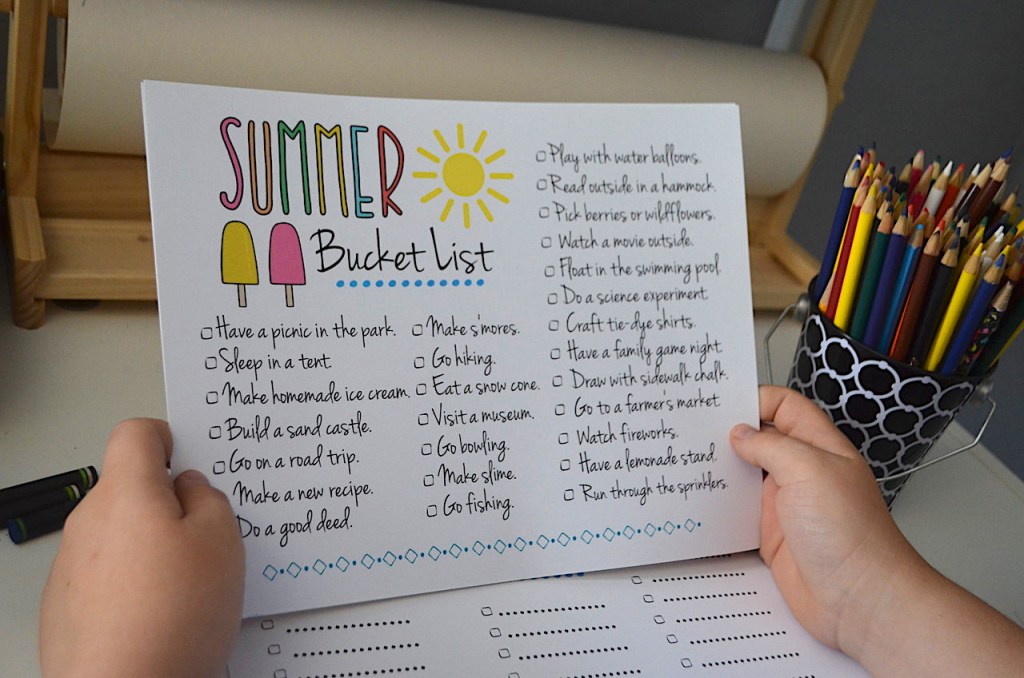 SUMMER
Bucket List
Have a picnic in the park.
Sleep in a tent.
Make homemade ice cream.
Build a sand castle.
Go on a road trip.
Make a new recipe.
Do a good deed.
Make s'mores.
Go hiking.
Eat a snow cone.
Visit a museum.
Go bowling.
Make slime.
Go fishing.
Play with water balloons.
Read outside in a hammock.
Pick berries or wildflowers.
Watch a movie outside.
Float in the swimming pool.
Do a science experiment.
Craft tie-dye shirts.
Have a family game night.
Draw with sidewalk chalk.
Go to a farmer's market.
Watch fireworks.
Have a lemonade stand.
Run through the sprinklers.